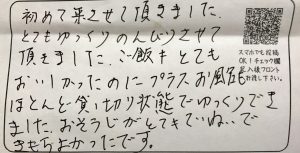 初めて来させて頂きました。
とてもゆっくりのんびりさせて
頂きました。ご飯もとても
おいしかったのにプラスお風呂も
ほとんど貸し切り状態でゆっくりでき
ました。おそうじがとてもていね、、で
きもちよかったです。
スマホでも投稿
OK！チェック欄
記入後フロント
お渡し下さい。